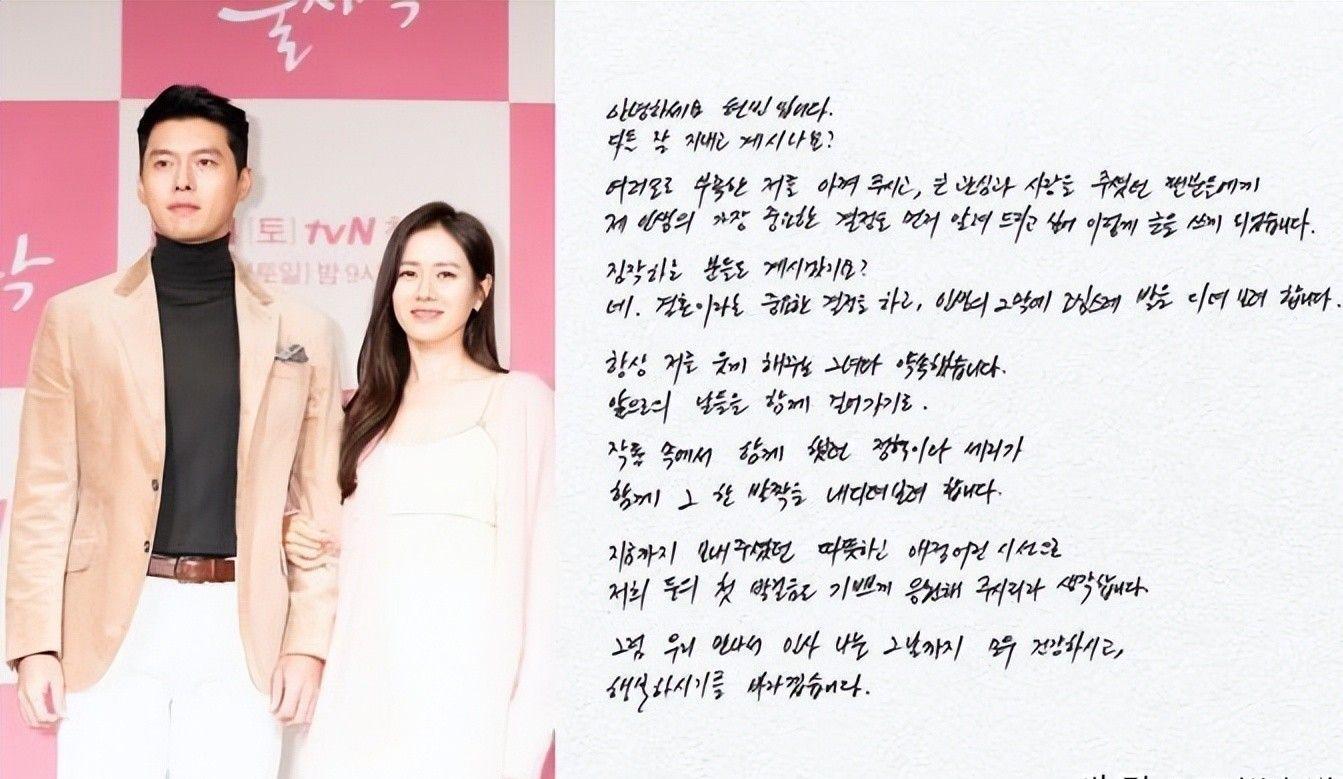 불시착
착
[토] tvN
토일] 밤 9시
안녕하세요 현빈입니다.
다들 잘 지내고 계시나요?
여러모로 부족한 저를 아껴 주시고, 큰 관심과 사랑을 주셨던 팬분들에게
제 인생의 가장 중요한 결정을 먼저 알려 드리고 싶어 이렇게 글을 쓰게 되었습니다.
짐작하는 분들도 계시겠지요?
네. 결혼이라는 중요한 결정을 하고, 인생의 2막에 조심스레 발을 디뎌 보려 합니다.
항상 저를 웃게 해주는 그녀와 약속했습니다.
앞으로의 날들을 함께 걸어가기로.
작품 속에서 함께 했던 정혁이와 세리가
함께 그 한 발짝을 내디뎌보려 합니다.
지금까지 보내주셨던 따뜻하신 애정어린 시선으로
저희 둘의 첫 발걸음도 기쁘게 응원해 주시리라 생각합니다.
그럼 우리 만나서 인사 나눌 그날까지 모두 건강하시고,
행복하시기를 바라겠습니다.